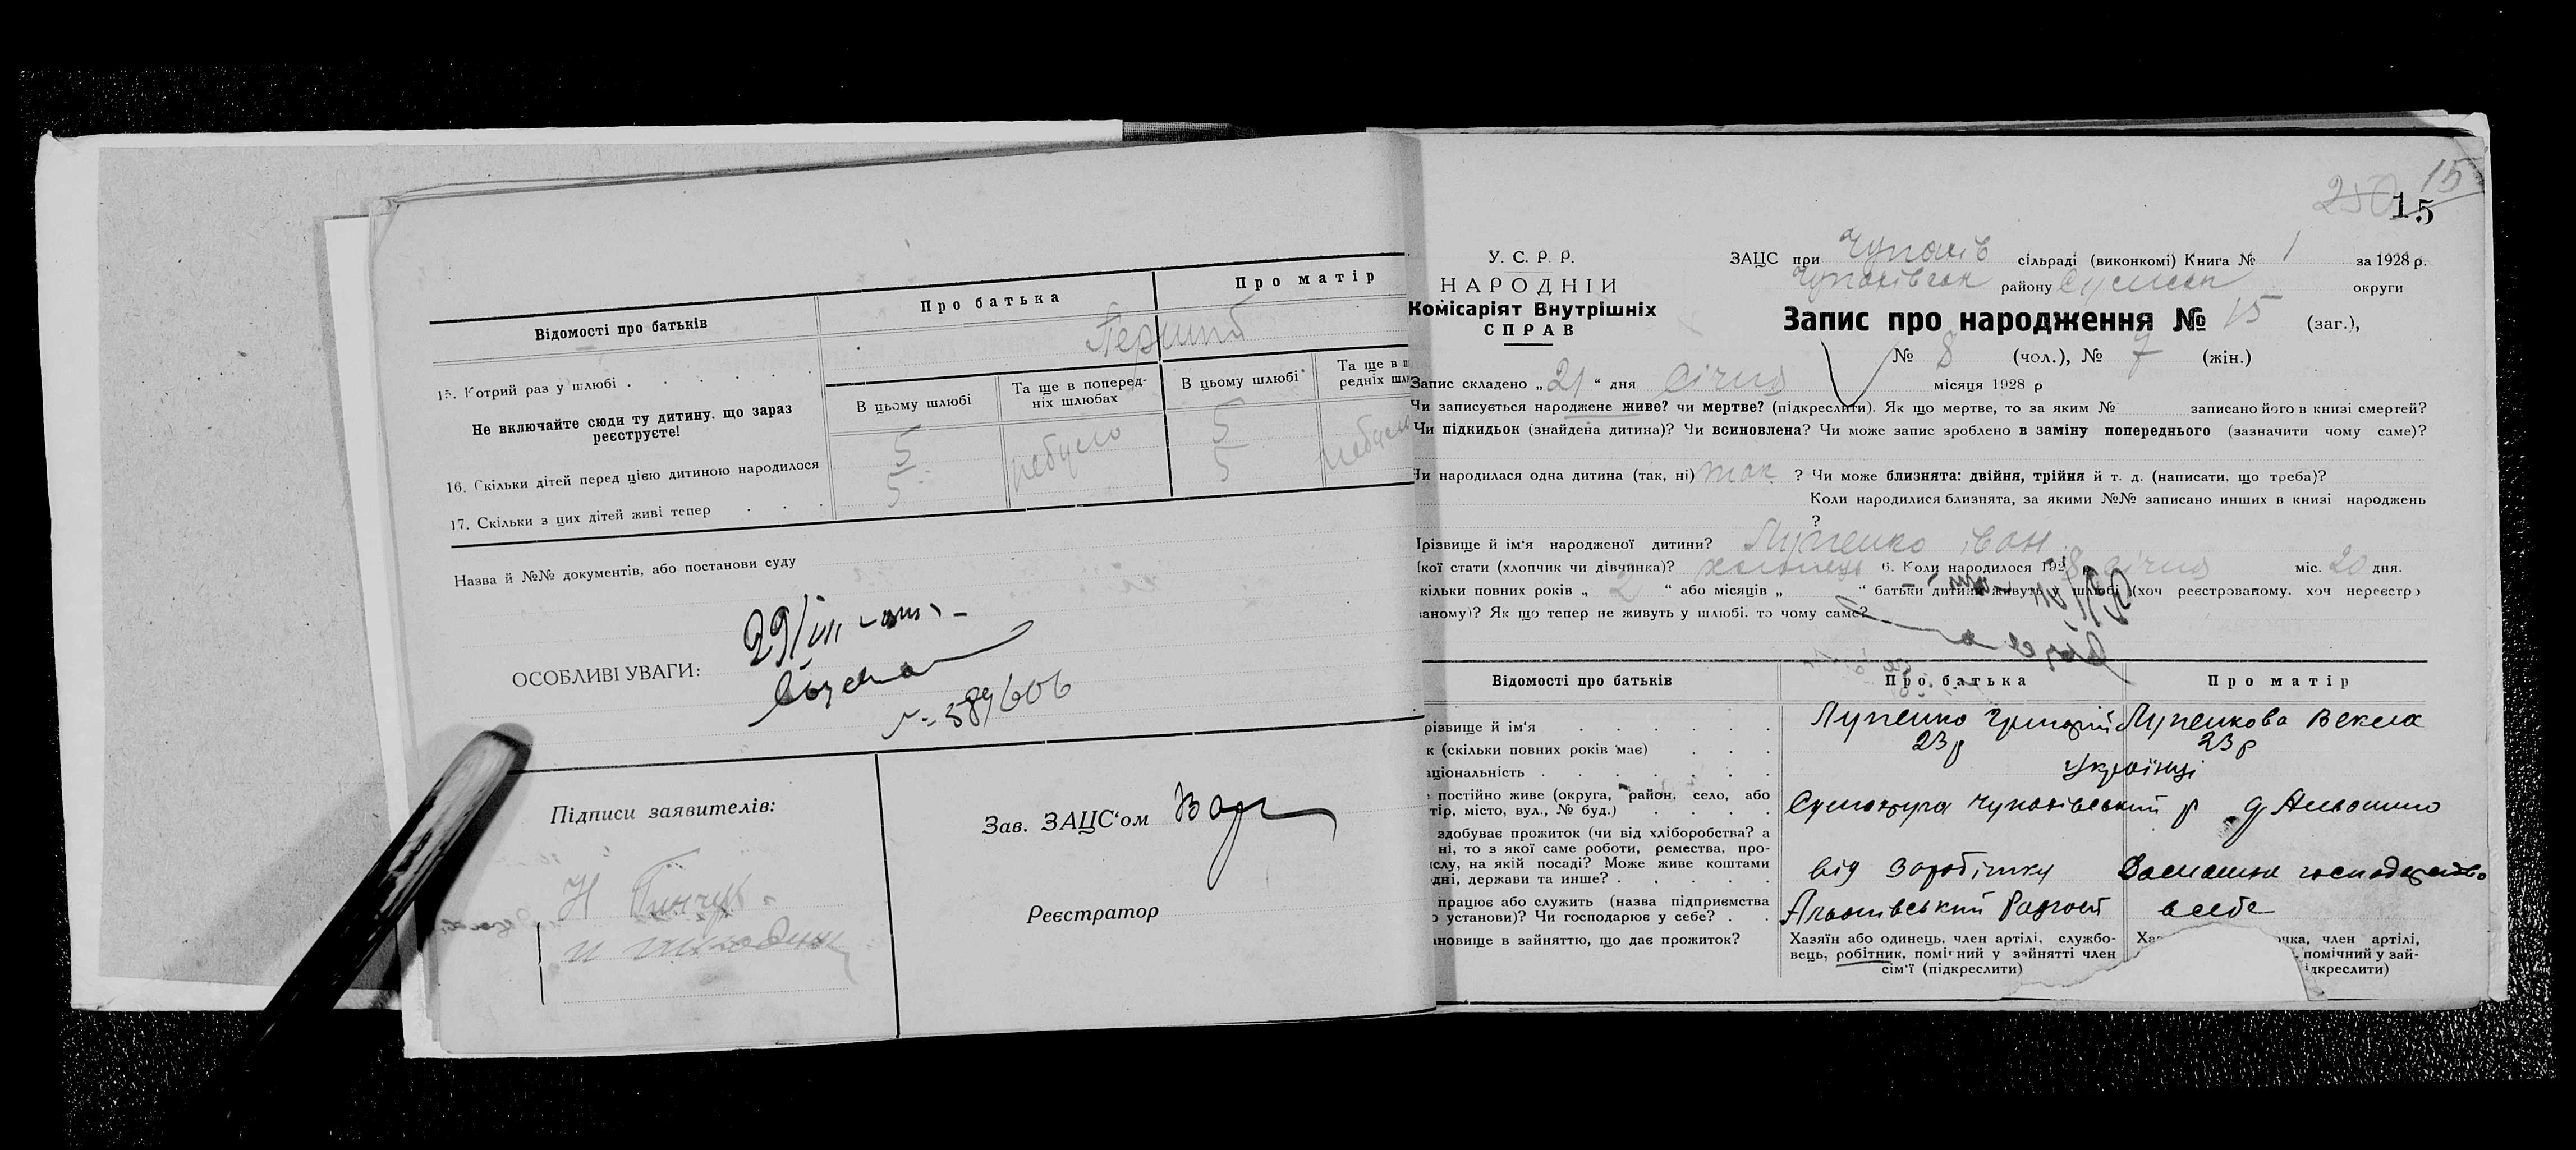 Відомості про батьків
Про батька
Про матір
15. Котрий раз у шлюбі
Перший
Не включайте сюди ту дитину, що зараз реєструєте!
В цьому шлюбі
Та ще в поперед-
ніх шлюбах
В цьому шлюбі
Та ще в п
редніх шлю
16. Скільки дітей перед цією дитиною народилося
5
небуло
5
небуло
17. Скільки з цих дітей живі тепер
5
5
Назва й №№ документів, або постанови суду
ОСОБЛИВІ УВАГИ:
29/VIII
589606
Підписи заявителів:
Зав. ЗАЦС'ом
Реєстратор
15
250
15
У. С. Р. Р.
НАРОДНІЙ
Комісаріят Внутрішніх
СПРАВ
ЗАЦС при Чупахів сільраді (виконкомі) Книга № 1 за 1928 р.
Чупахівськ району Сумськ округи
Запис про народження № 15 (заг.),
№ 8 (чол.), № 7 (жін.)
Запис складено „21“ дня Січня місяця 1928 р
Чи записується народжене живе? чи мертве? (підкреслити). Як що мертве, то за яким № записано його в книзі смертей?
Чи підкидьок (знайдена дитина)? Чи всиновлена? Чи може запис зроблено в заміну попереднього (зазначити чому саме)?
Чи народилася одна дитина (так, ні) так ? Чи може близнята: двійня, трійня й т. д. (написати, що треба)?
Коли народилися близнята, за якими №№ записано инших в книзі народжень
?
Прізвище й ім'я народженої дитини? Лупенко Іван
Якої стати (хлопчик чи дівчинка)? хлопець 6. Коли народилося 1928 січня міс. 20 дня.
кільки повних років „ 2 “ або місяців „ “ батьки дитини живуть у шлюбі (хоч реєстрованому, хоч нереєстро
ваному)? Як що тепер не живуть у шлюбі, то чому саме?
Відомості про батьків
Про батька
Про матір
різвище й ім'я
Лупенко Григорій
Лупенкова Векла
к (скільки повних років має)
23 р
23 р
аціональність
Українці
постійно живе (округа, район, село, або
тір, місто, вул., № буд.)
Сумокруга Чупахівський р
здобуває прожиток (чи від хліборобства? а
ні, то з якої саме роботи, ремества, про-
слу, на якій посаді? Може живе коштами
дні, держави та инше?
від заробітку
Домашнє господарство
працює або служить (назва підприємства
о установи)? Чи господарює у себе?
в себе
ановище в зайняттю, що дає прожиток?
Хазяїн або одинець, член артілі, службо-
вець, робітник, помічний у зайнятті член
сім'ї (підкреслити)
Ха
чка, член артілі,
помічний у зай-
ідкреслити)